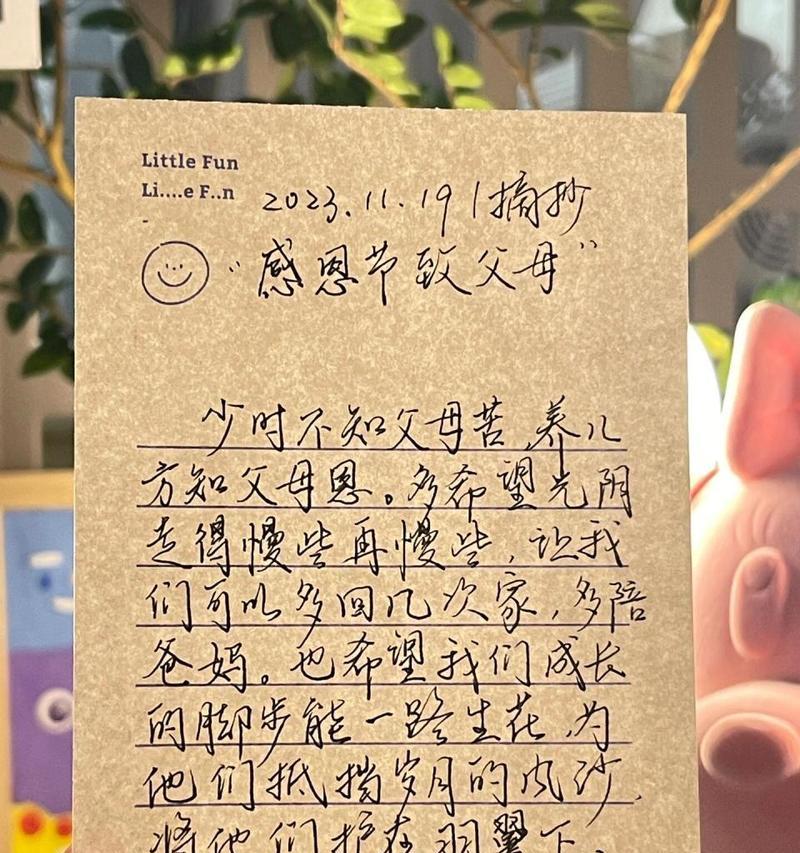 Little Fun
Li....e F..n
-
2023.11.19 | 摘抄
“感恩节致父母”
少时不知父母苦,养儿
方知父母恩。多希望光阴
走得慢些再慢些,让我
们可以多回几次家,多陪
爸妈。也希望我们成长
的脚步能一路生花,为
他们抵挡岁月的风沙,
将他们护在羽翼下。